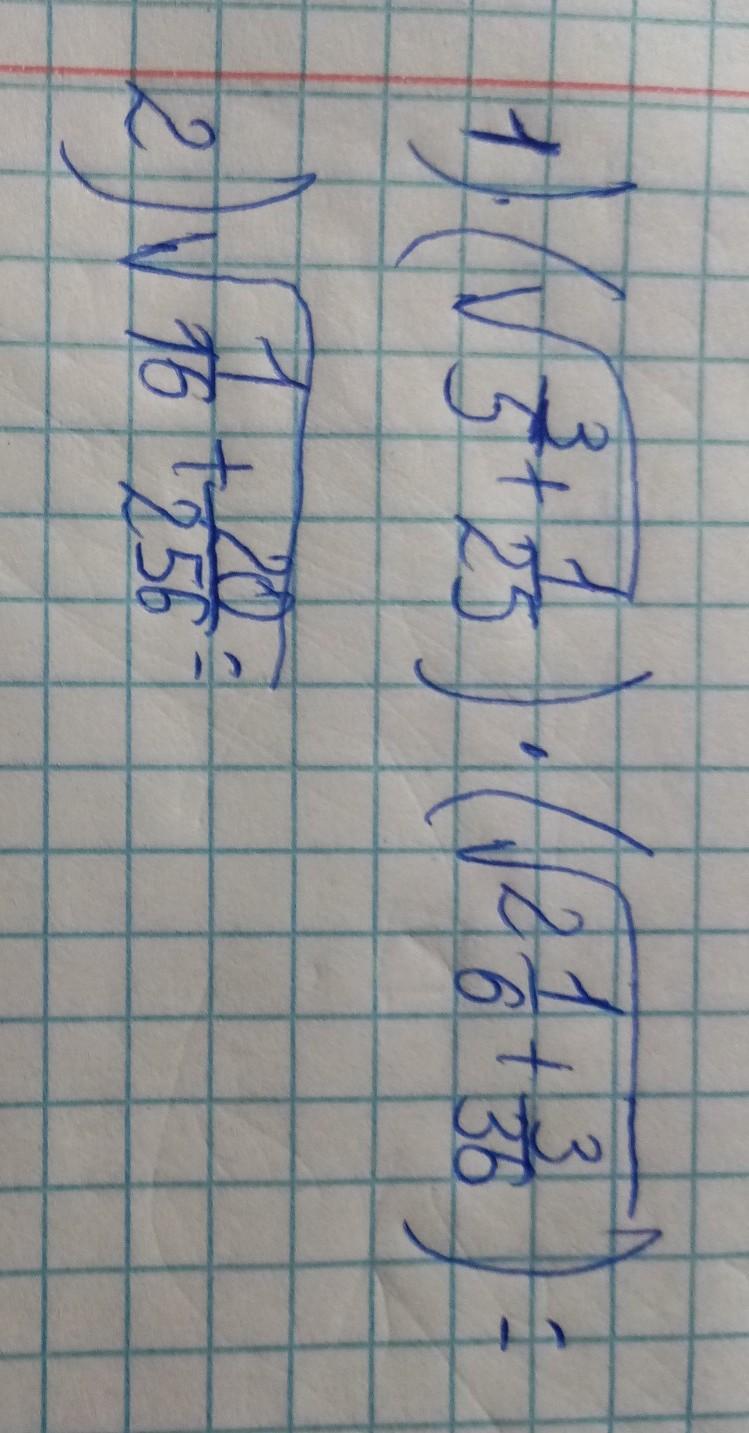 1) (√(3/5 + 1/25)) · (√(2 1/6 + 3/36)) =
2) √(1/16 + 20/256) =